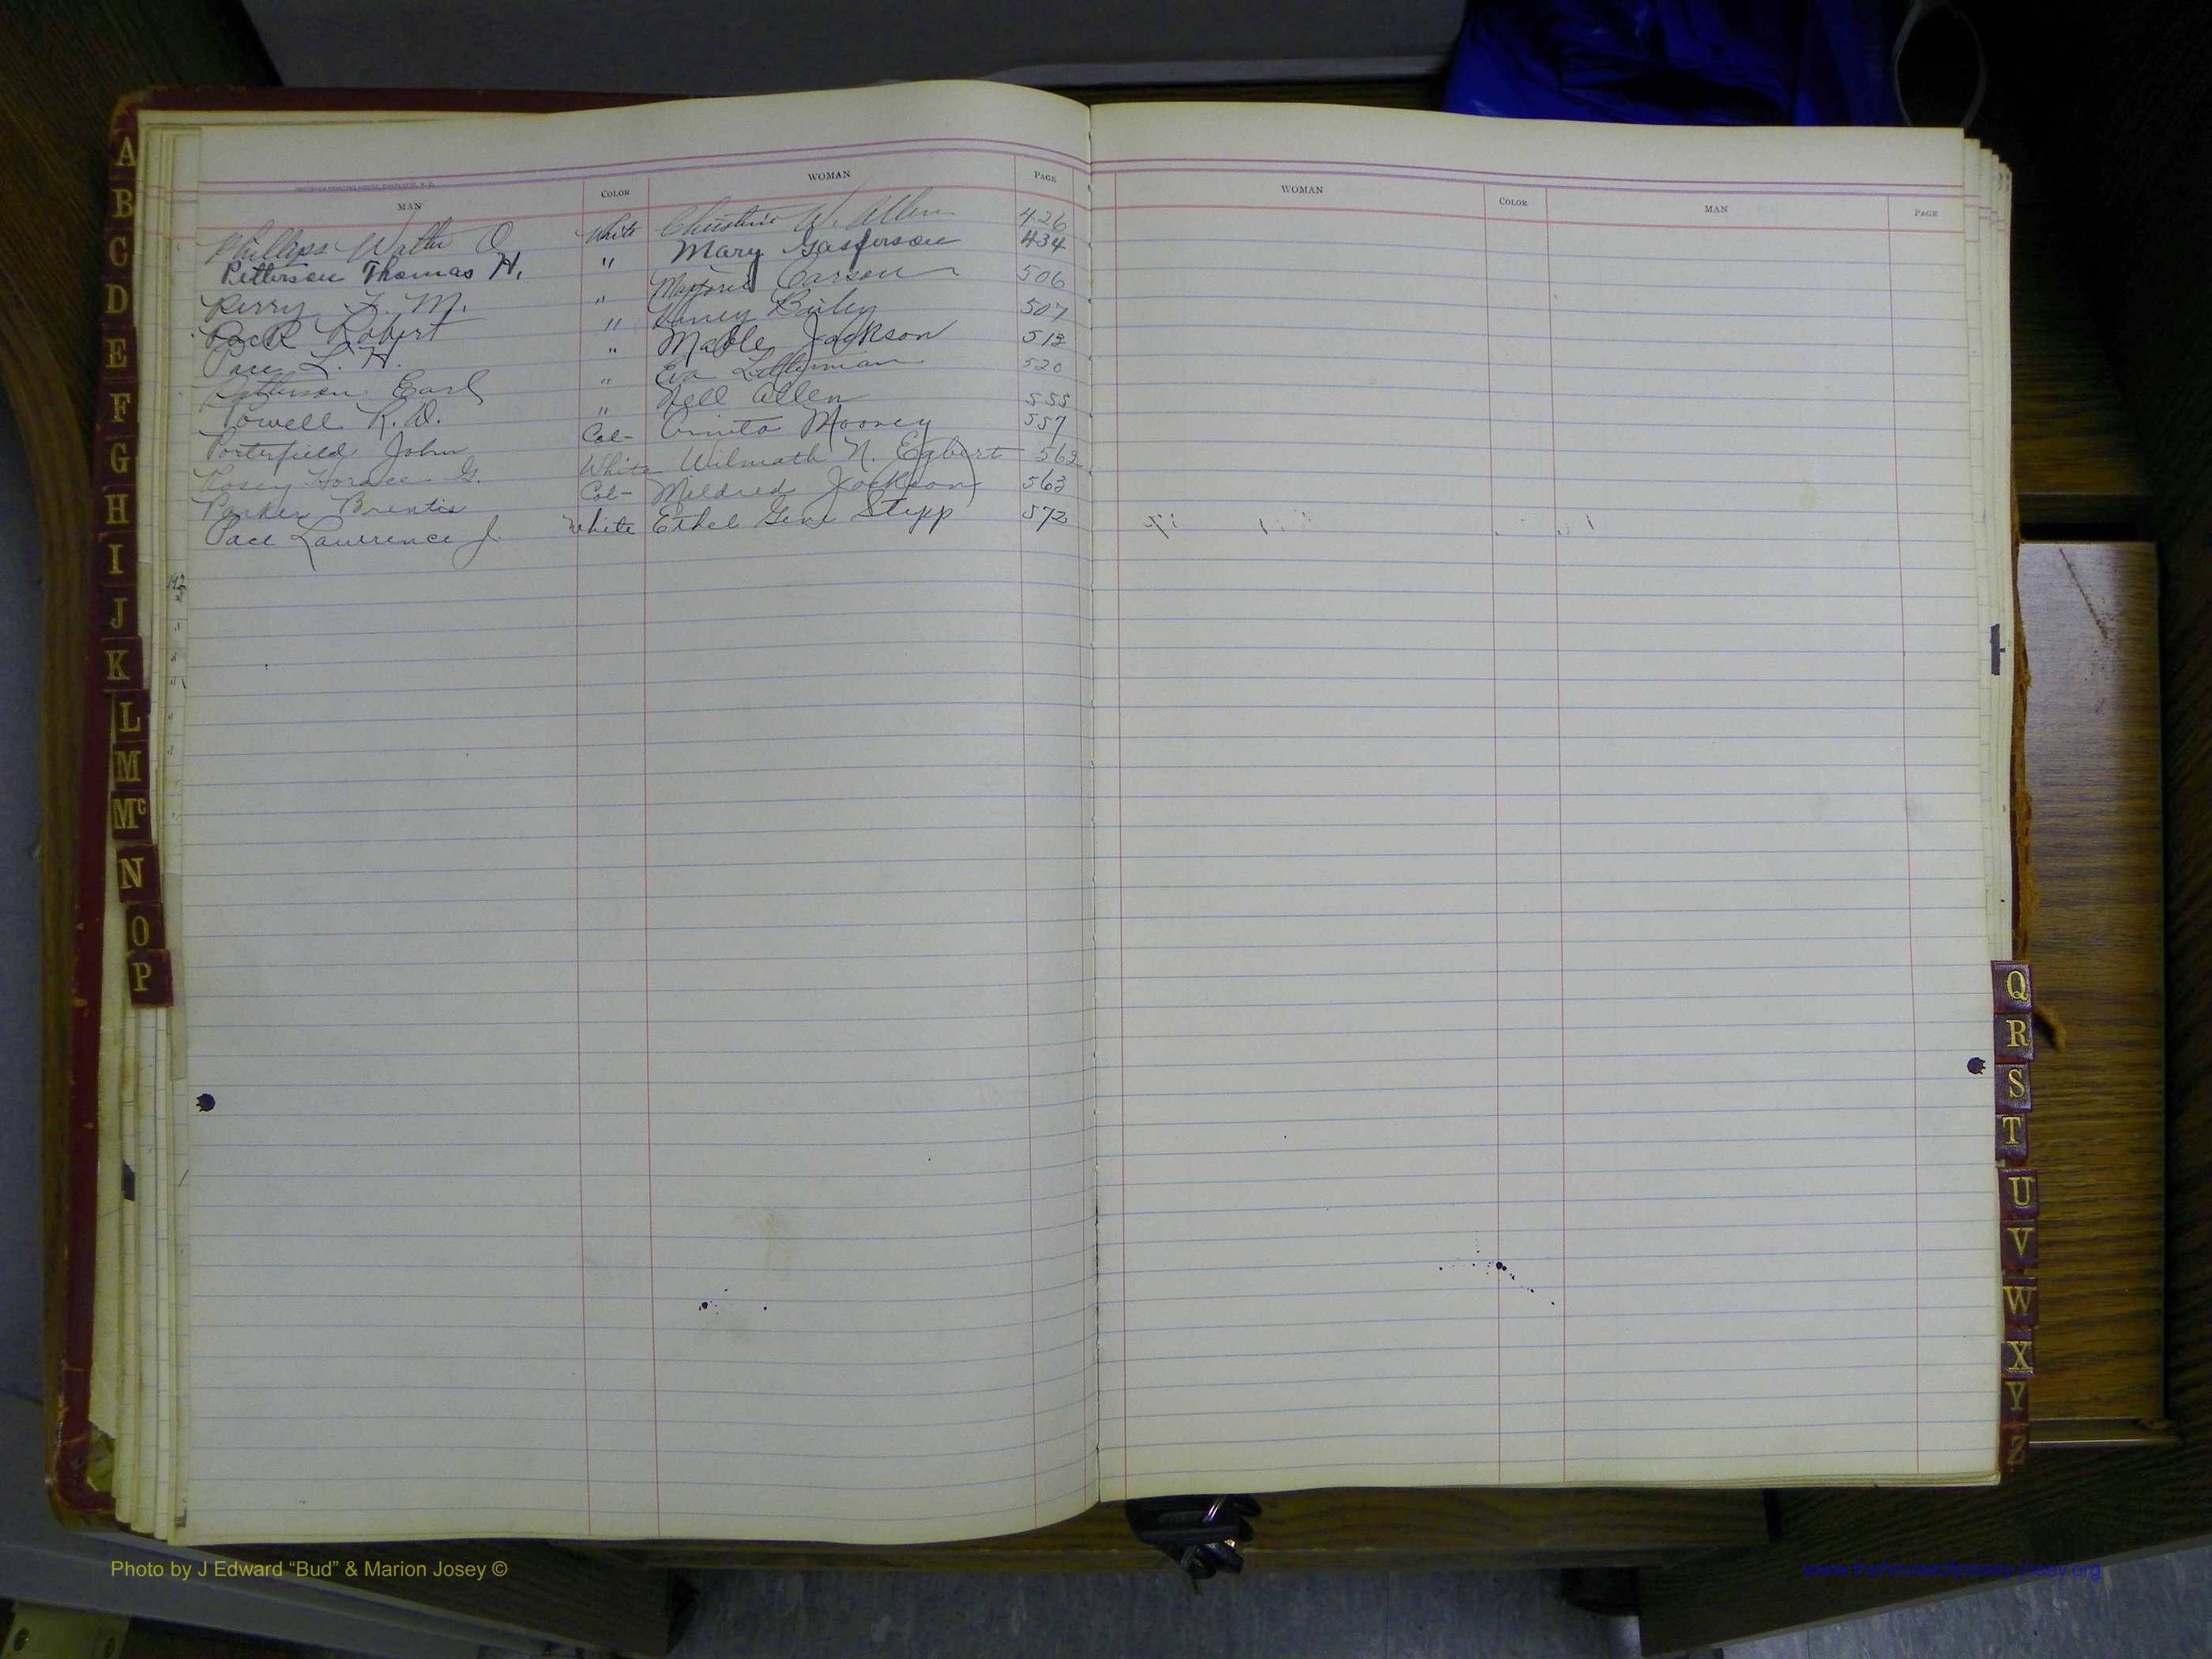 MAN COLOR WOMAN PAGE
Phillips Walter O. White Christine W. Allen 426
Petterson Thomas H. " Mary Gasperson 434
Perry F. M. " Marjorie Carson 506
Pack Robert " Bailey 507
Pace L. H. " Mable Jackson 512
Patterson Earl " Eva Letterman 520
Powell R. D. " Nell Allen 555
Porterfield John Col- Mooney 557
Posey Horace G. White Wilmath N. Egbert 562
Parker Brentis Col- Mildred Jackson 563
Pace Lawrence J. White Ethel Gene Stepp 572
WOMAN COLOR MAN PAGE
A
B
C
D
E
F
G
H
I
J
K
L
M
Mc
N
O
P
Q
R
S
T
U
V
W
X
Y
Z
Photo by J Edward “Bud” & Marion Josey ©
www.thehouseofjossey-josey.org